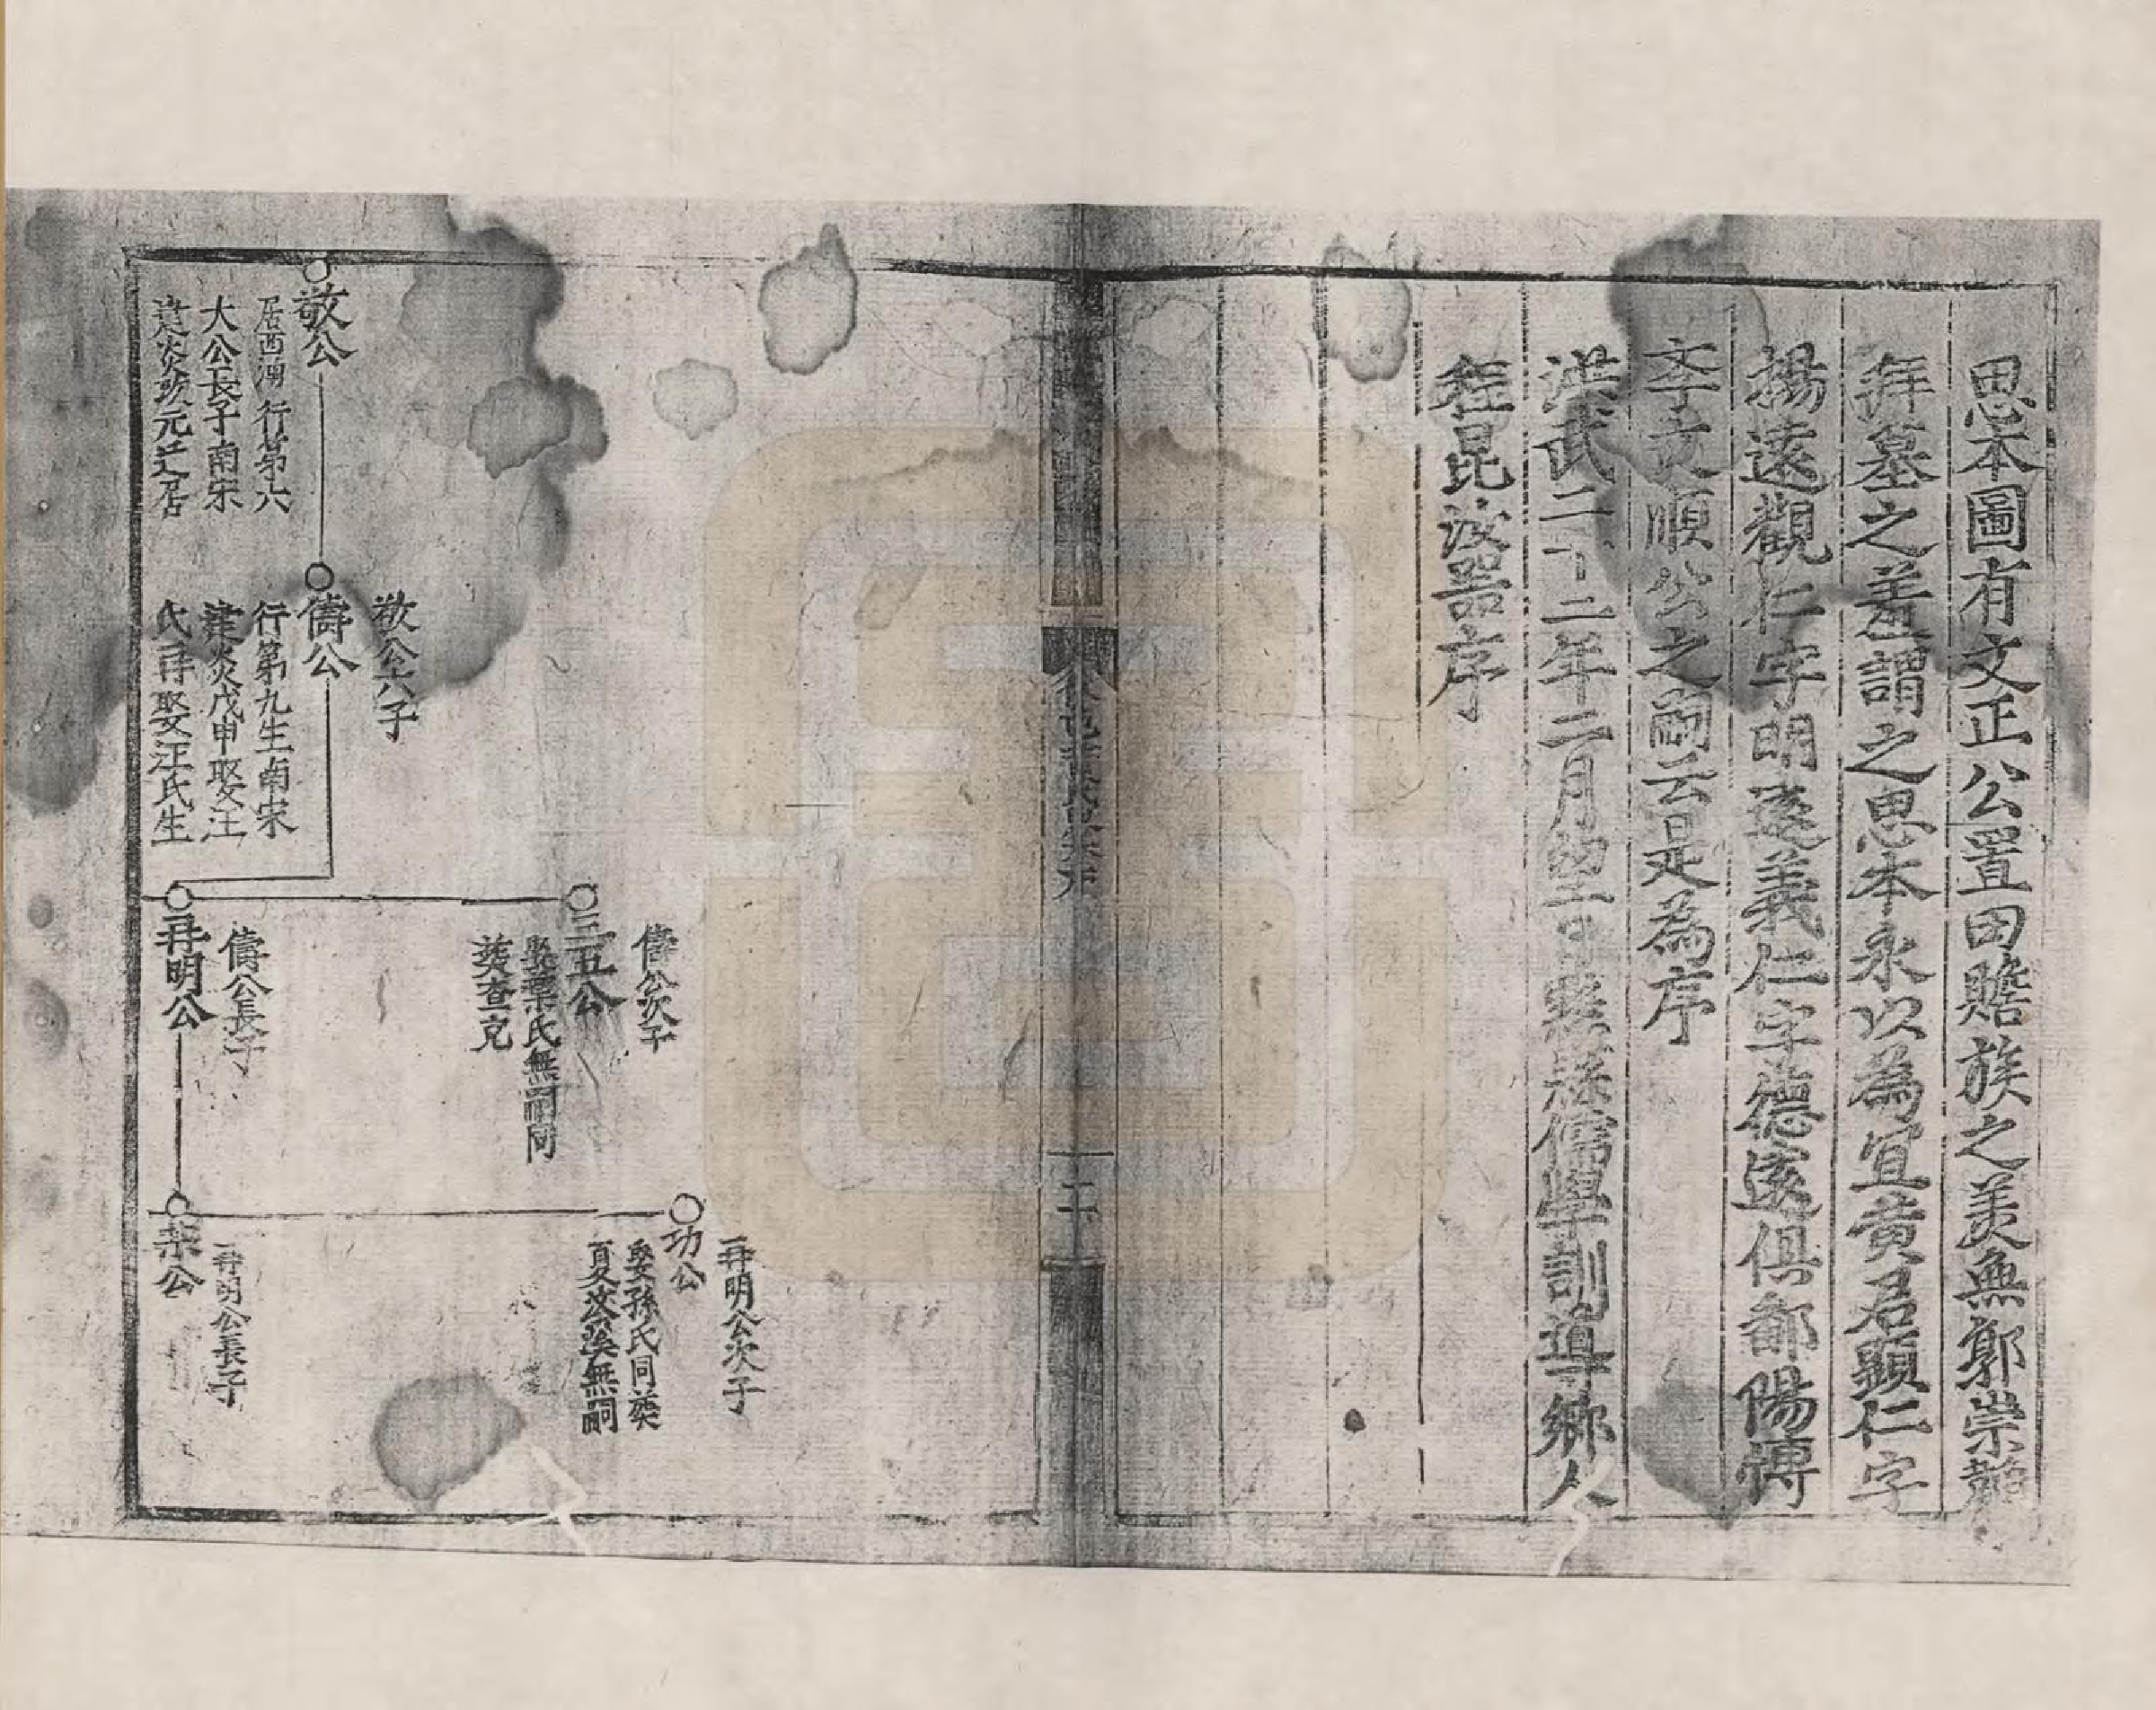 思本圖有文正公置田贍族之美無郭崇韜
拜墓之羞謂之思本永以為宜黄君顕仁字
揚遠觀仁字明遠義仁字德遠俱鄱陽博
文順公之嗣云是為序
洪武二十二年二月望日縣儒學訓導鄉人
程昆汝器序
二十
敬公
居西 行第六
大公長子南宋
建炎 元 居
敬公六子
儔公
行第九生南宋
建炎戊申娶汪
氏再娶汪氏生
儔公次子
三五公
娶葉氏無嗣同
葬查充
儔公長子
再明公
再明公次子
功公
娶孫氏同葬
夏汝溪無嗣
再明公長子
榮公